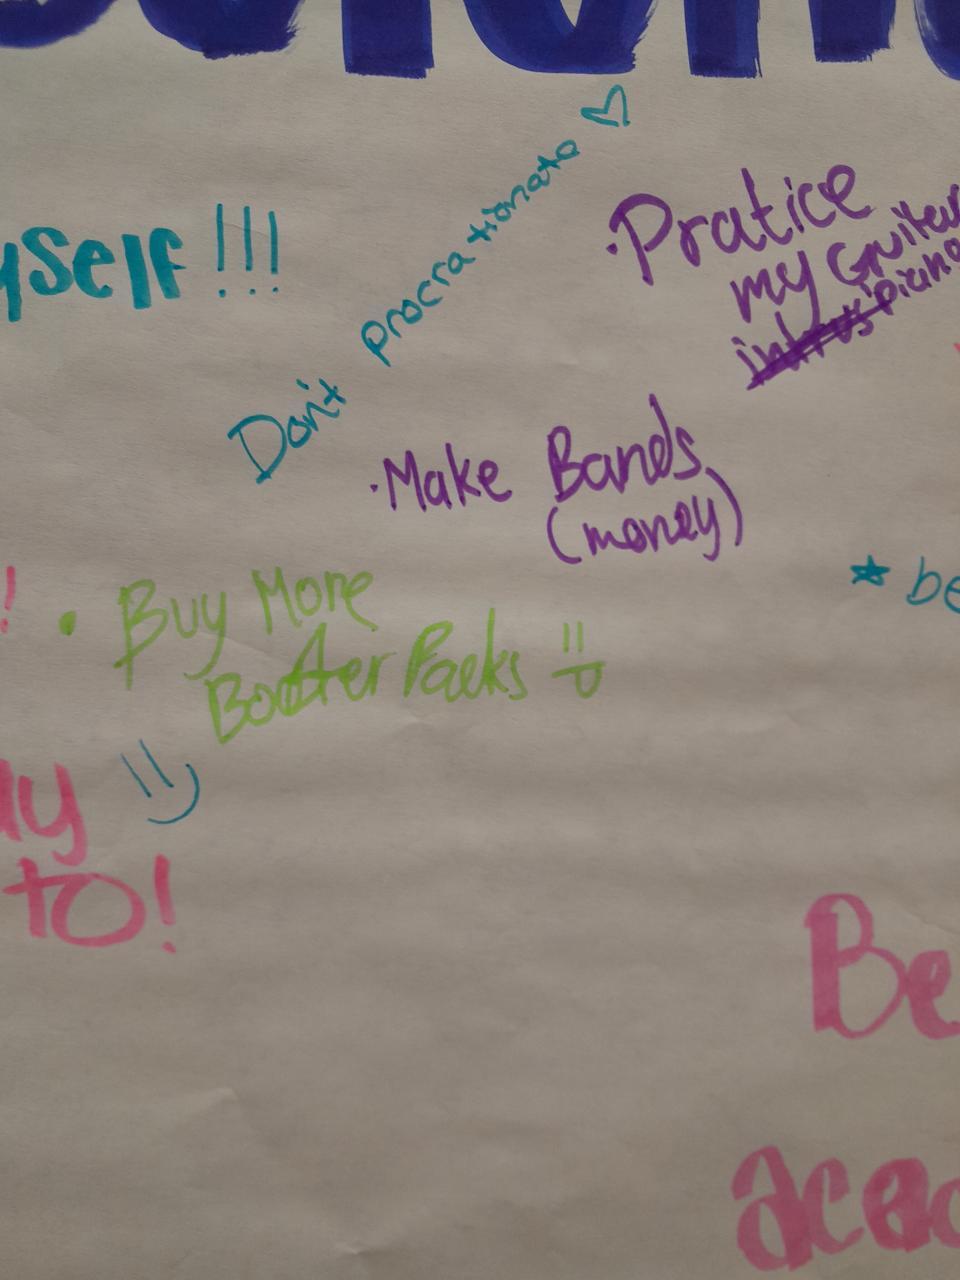 yself !!!
Don't procrationate
·Pratice
my Guitar
piano
·Make Bands
(money)
!
• Buy More
Booster Packs =D
* be
y =)
to!
Be
aca